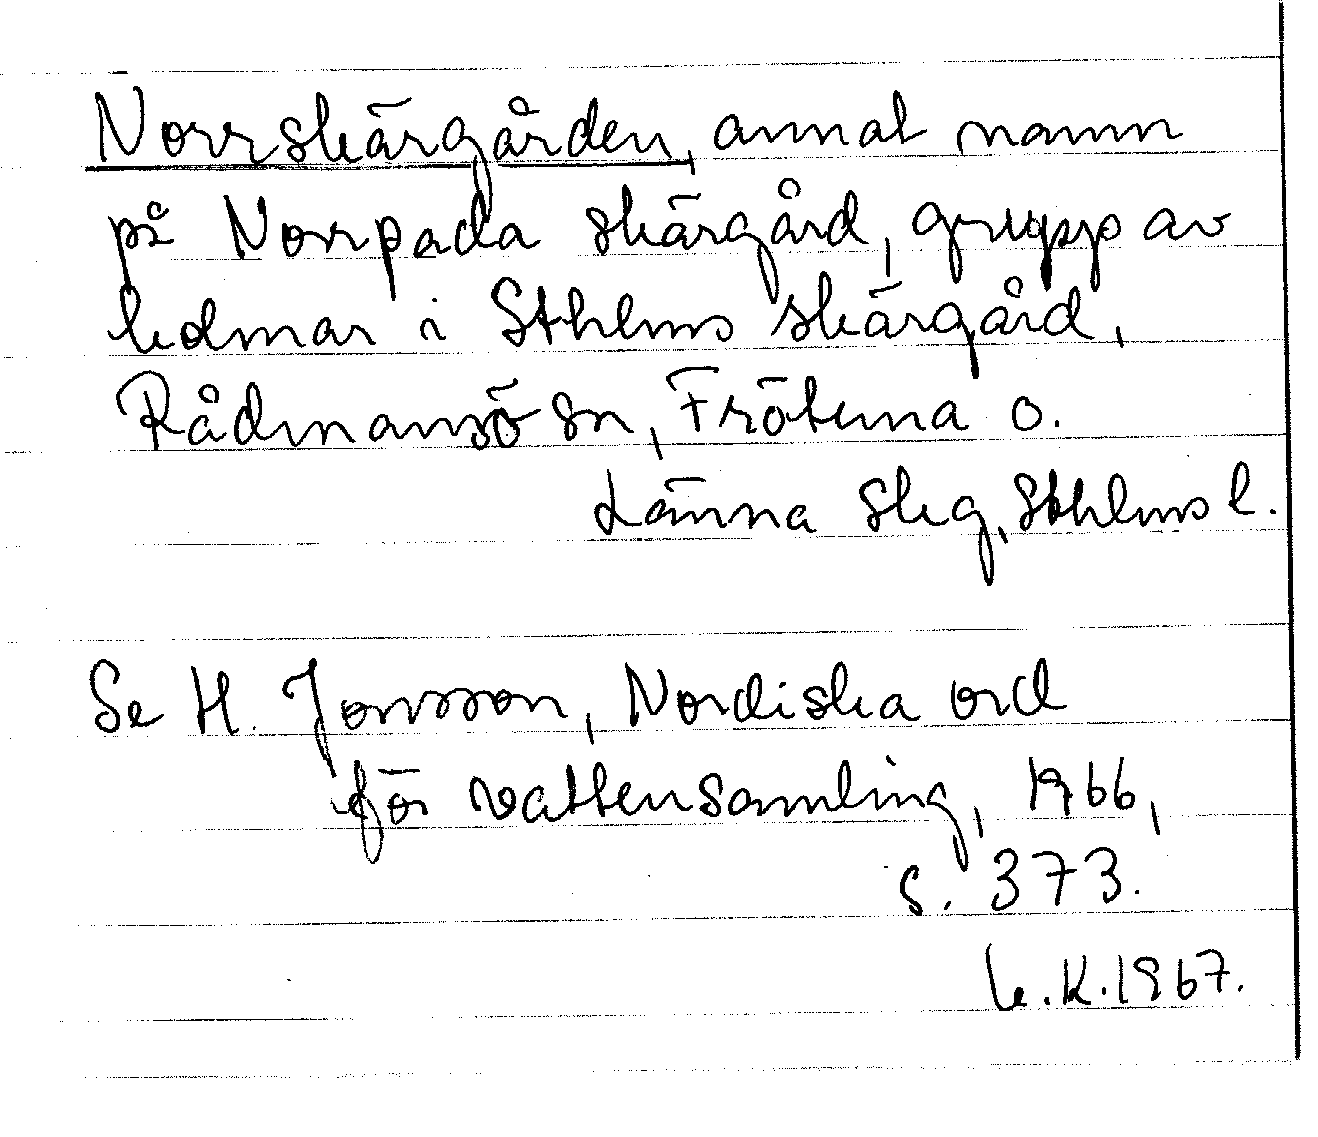 Norrskärgården, annat namn
på Norrpada skärgård, grupp av
holmar i Sthlms skärgård,
Rådmansö sn, Frötuna o.
Länna slg, Sthlms l.
Se H. Jonsson, Nordiska ord
för vattensamling, 1966,
s. 373.
K.1967.